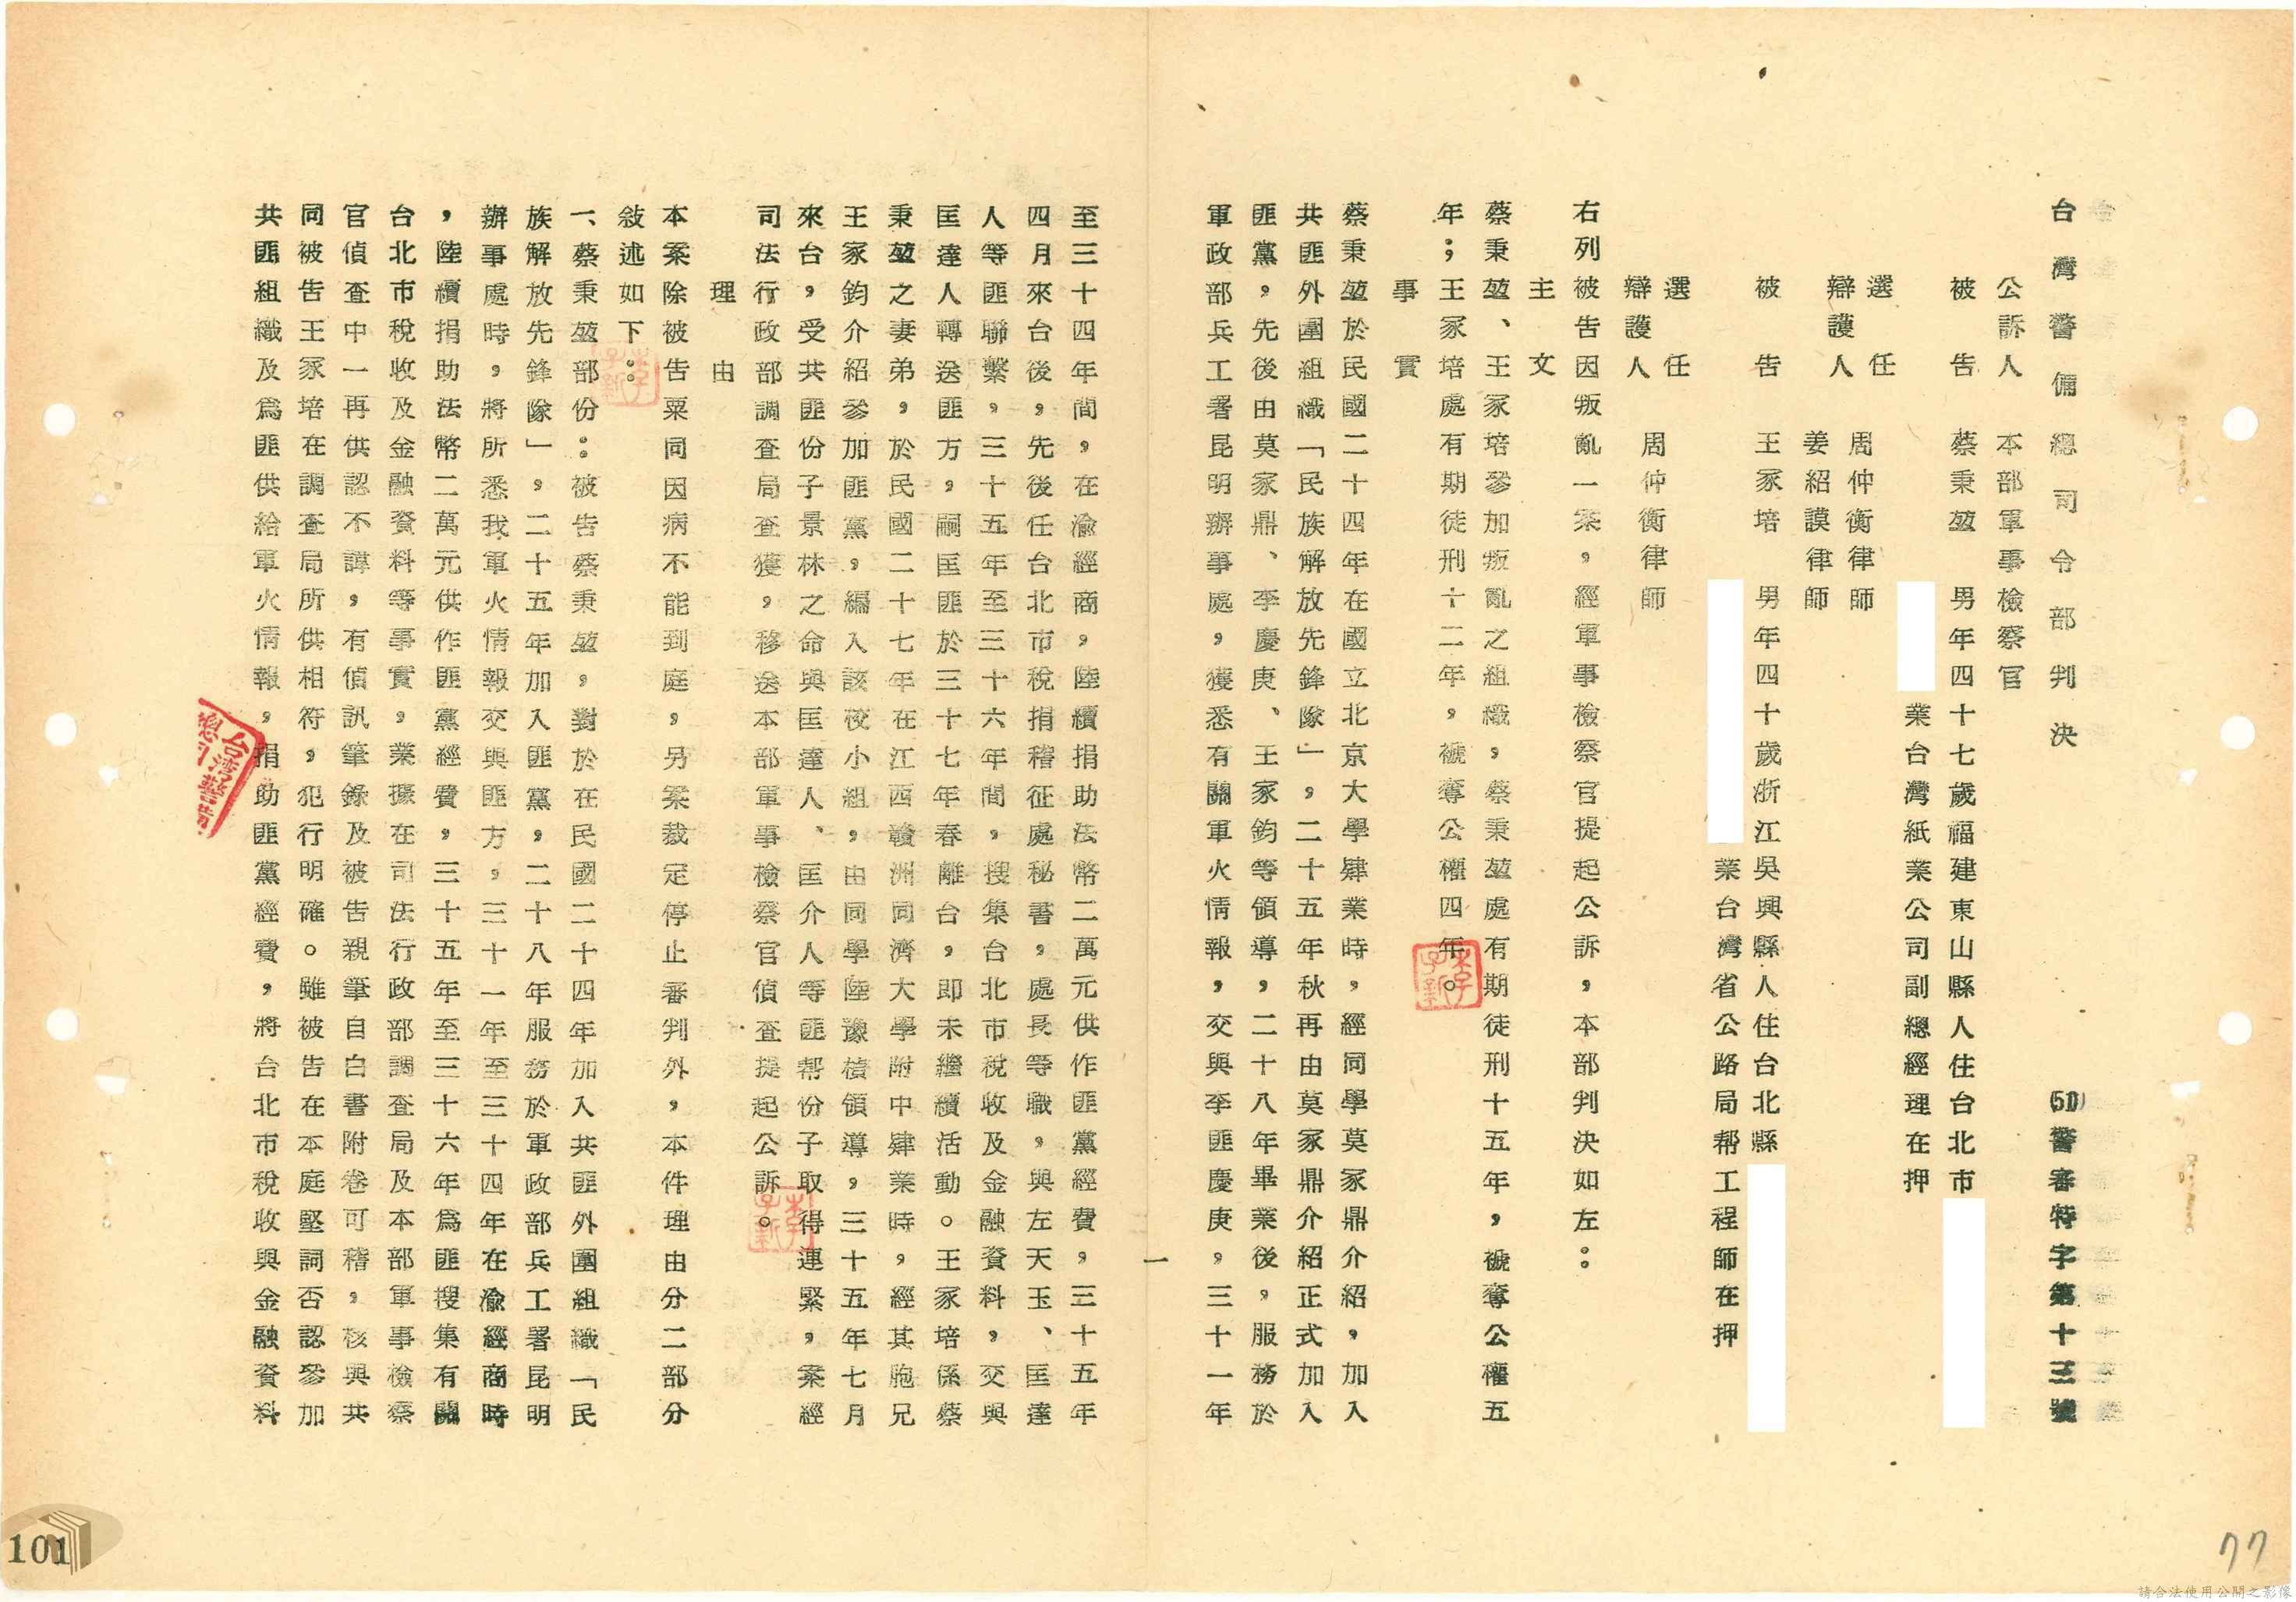 台灣警備總司令部判決
(50)警審特字第十三號
公訴人 本部軍事檢察官
被告 蔡秉堃 男年四十七歲福建東山縣人住台北市
業台灣紙業公司副總經理在押
選任
辯護人 周仲衡律師
姜紹謨律師
被告 王家培 男年四十歲浙江吳興縣人住台北縣
業台灣省公路局幫工程師在押
選任
辯護人 周仲衡律師
右列被告因叛亂一案,經軍事檢察官提起公訴,本部判決如左:
主文
蔡秉堃、王家培參加叛亂之組織,蔡秉堃處有期徒刑十五年,褫奪公權五
年;王家培處有期徒刑十二年,褫奪公權四年。
事實
蔡秉堃於民國二十四年在國立北京大學肄業時,經同學莫家鼎介紹,加入
共匪外圍組織「民族解放先鋒隊」,二十五年秋再由莫家鼎介紹正式加入
匪黨,先後由莫家鼎、李慶庚、王家鈞等領導,二十八年畢業後,服務於
軍政部兵工署昆明辦事處,獲悉有關軍火情報,交與李匪慶庚,三十一年
一
至三十四年間,在渝經商,陸續捐助法幣二萬元供作匪黨經費,三十五年
四月來台後,先後任台北市稅捐稽征處秘書,處長等職,與左天玉、匡達
人等匪聯繫,三十五年至三十六年間,搜集台北市稅收及金融資料,交與
匡達人轉送匪方,嗣匡匪於三十七年春離台,即未繼續活動。王家培係蔡
秉堃之妻弟,於民國二十七年在江西贛洲同濟大學附中肄業時,經其胞兄
王家鈞介紹參加匪黨,編入該校小組,由同學陸豫積領導,三十五年七月
來台,受共匪份子景林之命與匡達人、匡介人等匪幫份子取得連緊,案經
司法行政部調查局查獲,移送本部軍事檢察官偵查提起公訴。
理由
本案除被告粟同因病不能到庭,另案裁定停止審判外,本件理由分二部分
敍述如下:
一、蔡秉堃部份:被告蔡秉堃,對於在民國二十四年加入共匪外圍組織「民
族解放先鋒隊」,二十五年加入匪黨,二十八年服務於軍政部兵工署昆明
辦事處時,將所悉我軍火情報交與匪方,三十一年至三十四年在渝經商時
,陸續捐助法幣二萬元供作匪黨經費,三十五年至三十六年為匪搜集有關
台北市稅收及金融資料等事實,業據在司法行政部調查局及本部軍事檢察
官偵查中一再供認不諱,有偵訊筆錄及被告親筆自白書附卷可稽,核與共
同被告王家培在調查局所供相符,犯行明確。雖被告在本庭堅詞否認參加
共匪組織及為匪供給軍火情報,捐助匪黨經費,將台北市稅收與金融資料
台灣警備
總司
101
77
請合法使用公開之影像